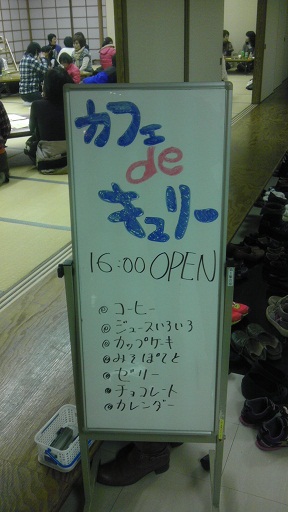 カフェ
de
キュリー
16:00 OPEN
◎ コーヒー
◎ ジュースいろいろ
◎ カップケーキ
◎ みそぽてと
◎ ゼリー
◎ チョコレート
◎ カレンダー